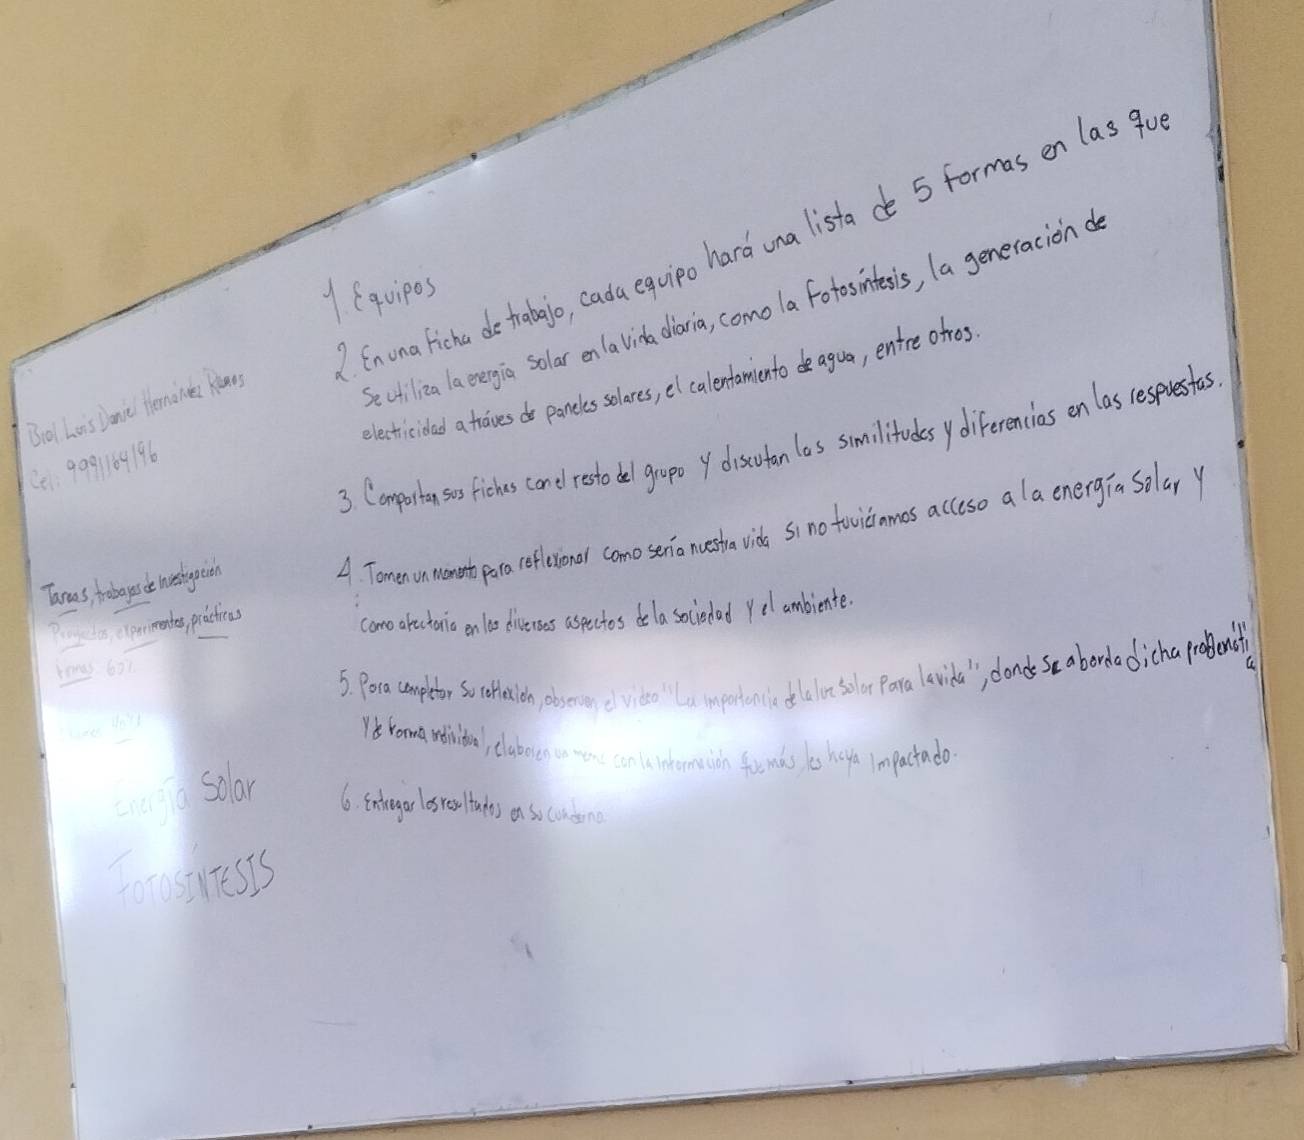 Biol. Luis Daniel Hernández Ramos
Cel: 9991164196
Tareas, trabajos de investigación
Proyectos, experimentos, prácticas
60%
Energía Solar
FOTOSÍNTESIS
1. Equipos
2. En una ficha de trabajo, cada equipo hará una lista de 5 formas en las que
se utiliza la energía solar en la vida diaria, como la fotosíntesis, la generación de
electricidad a tráves de paneles solares, el calentamiento de agua, entre otros.
3. Compartan sus fichas con el resto del grupo y discutan las similitudes y diferencias en las respuestas.
4. Tomen un momento para reflexionar como sería nuestra vida si no tuviéramos acceso a la energía solar y
como afectaría en los diversos aspectos de la sociedad y el ambiente.
5. Para completar su reflexión, observen el video "La importancia de la luz solar para la vida", donde se aborda dicha problemática
y de forma individual, elaboren un meme con la información que más les haya impactado.
6. Entregar los resultados en su cuaderno